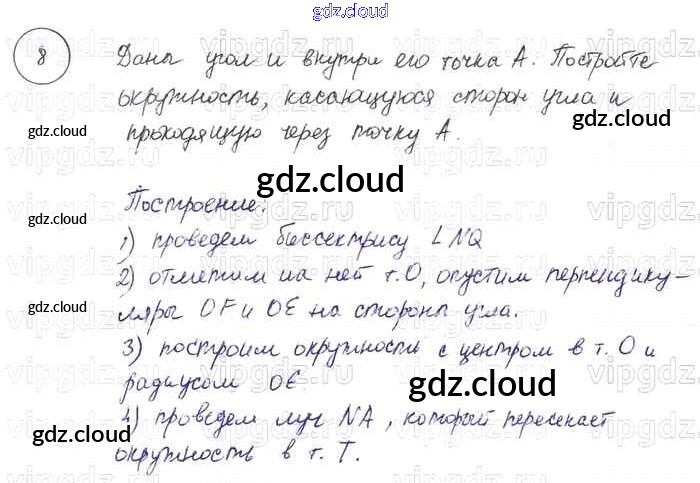 gdz.cloud
8 Даны угол и внутри его точка А. Постройте
окружность, касающуюся сторон угла и
gdz.cloud gdz.cloud
проходящую через точку А.
gdz.cloud
Построение:
1) проведем биссектрису ∠NQ
2) отметим на ней т.О, опустим перпендику-
gdz.cloud gdz.cloud
ляры OF и OE на стороны угла.
3) построим окружность с центром в т. О и
радиусом OE.
gdz.cloud
4) проведем луч NA, который пересекает
gdz.cloud gdz.cloud
окружность в т. T.